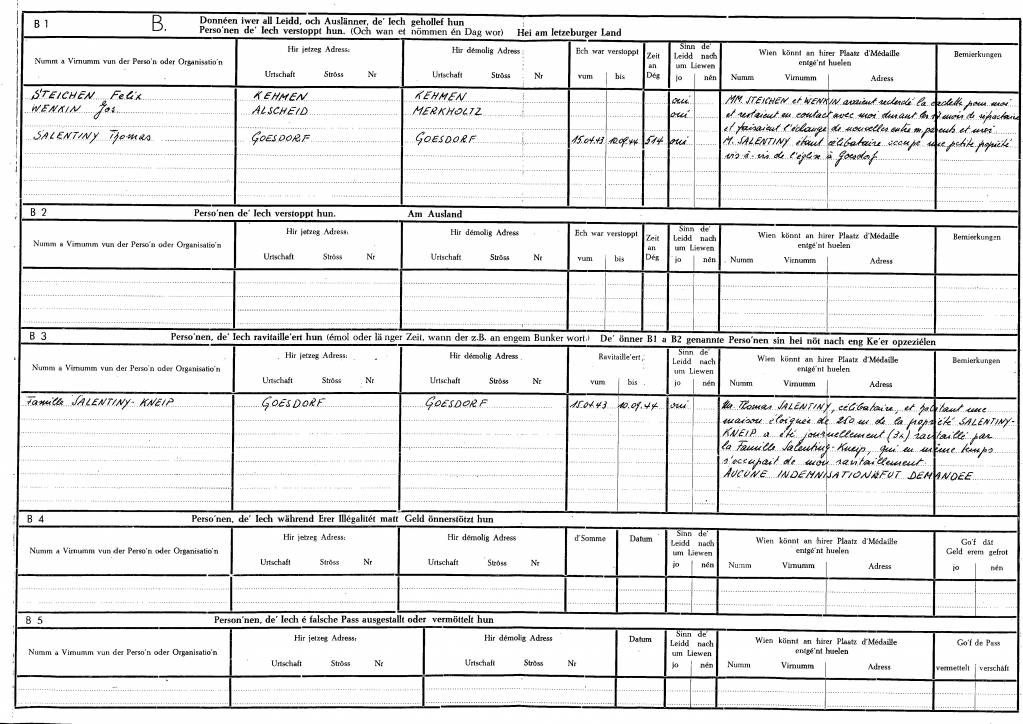 B 1 B. Donnéen iwer all Leidd, och Auslänner, de' Iech gehollef hun
Perso'nen de' Iech verstoppt hun. (Och wan et nömmen én Dag wor) Hei am letzeburger Land
Numm a Virnumm vun der Perso'n oder Organisatio'n
Hir jetzeg Adress:
Urtschaft Ströss Nr
Hir démolig Adress
Urtschaft Ströss Nr
Ech war verstoppt
vum bis
Zeit an Dég
Sinn de' Leidd nach um Liewen
jo nén
Wien könnt an hirer Plaatz d'Médaille
entgé'nt huelen
Numm Virnumm Adress
Bemierkungen
STEICHEN Felix KEHMEN KEHMEN oui MM. STEICHEN et WENKIN avaient recherché la cachette pour moi
WENKIN Jos. ALSCHEID MERKHOLTZ oui et restaient en contact avec moi durant les 17 mois de réfractaire
et faisaient l'échange de nouvelles entre m. parents et moi.
SALENTINY Thomas GOESDORF GOESDORF 15.04.43 10.09.44 514 oui M. SALENTINY étant célibataire occupe une petite propriété
vis-à-vis de l'église à Goesdorf
B 2 Perso'nen de' Iech verstoppt hun. Am Ausland
Numm a Virnumm vun der Perso'n oder Organisatio'n
Hir jetzeg Adress:
Urtschaft Ströss Nr
Hir démolig Adress:
Urtschaft Ströss Nr
Ech war verstoppt
vum bis
Zeit an Dég
Sinn de' Leidd nach um Liewen
jo nén
Wien könnt an hirer Plaatz d'Médaille
entgé'nt huelen
Numm Virnumm Adress
Bemierkungen
B 3 Perso'nen, de' Iech ravitaille'ert hun (émol oder länger Zeit, wann der z.B. an engem Bunker wort.) De' önner B1 a B2 genannte Perso'nen sin hei nöt nach eng Ke'er opzeziélen
Numm a Virnumm vun der Perso'n oder Organisatio'n
Hir jetzeg Adress:
Urtschaft Ströss Nr
Hir démolig Adress:
Urtschaft Ströss Nr
Ravitaille'ert:
vum bis
Sinn de' Leidd nach um Liewen
jo nén
Wien könnt an hirer Plaatz d'Médaille
entgé'nt huelen
Numm Virnumm Adress
Bemierkungen
Famille SALENTINY-KNEIP GOESDORF GOESDORF 15.04.43 10.09.44 oui Mr Thomas SALENTINY, célibataire, et habitant une
maison éloignée de 250 m de la propriété SALENTINY-
KNEIP a été journellement (3x) ravitaillé par
la Famille Salentiny-Kneip, qui en même temps
s'occupait de mon ravitaillement.
AUCUNE INDEMNISATION FUT DEMANDEE
B 4 Perso'nen, de' Iech während Erer Illégalitét matt Geld önnerstötzt hun
Numm a Virnumm vun der Perso'n oder Organisatio'n
Hir jetzeg Adress:
Urtschaft Ströss Nr
Hir démolig Adress:
Urtschaft Ströss Nr
d'Somme Datum
Sinn de' Leidd nach um Liewen
jo nén
Wien könnt an hirer Plaatz d'Médaille
entgé'nt huelen
Numm Virnumm Adress
Go'f dât
Geld erem gefrot
jo nén
B 5 Person'nen, de' Iech é falsche Pass ausgestallt oder vermöttelt hun
Numm a Virnumm vun der Perso'n oder Organisatio'n
Hir jetzeg Adress:
Urtschaft Ströss Nr
Hir démolig Adress:
Urtschaft Ströss Nr
Datum
Sinn de' Leidd nach um Liewen
jo nén
Wien könnt an hirer Plaatz d'Médaille
entgé'nt huelen
Numm Virnumm Adress
Go'f de Pass
vermettelt verschâft